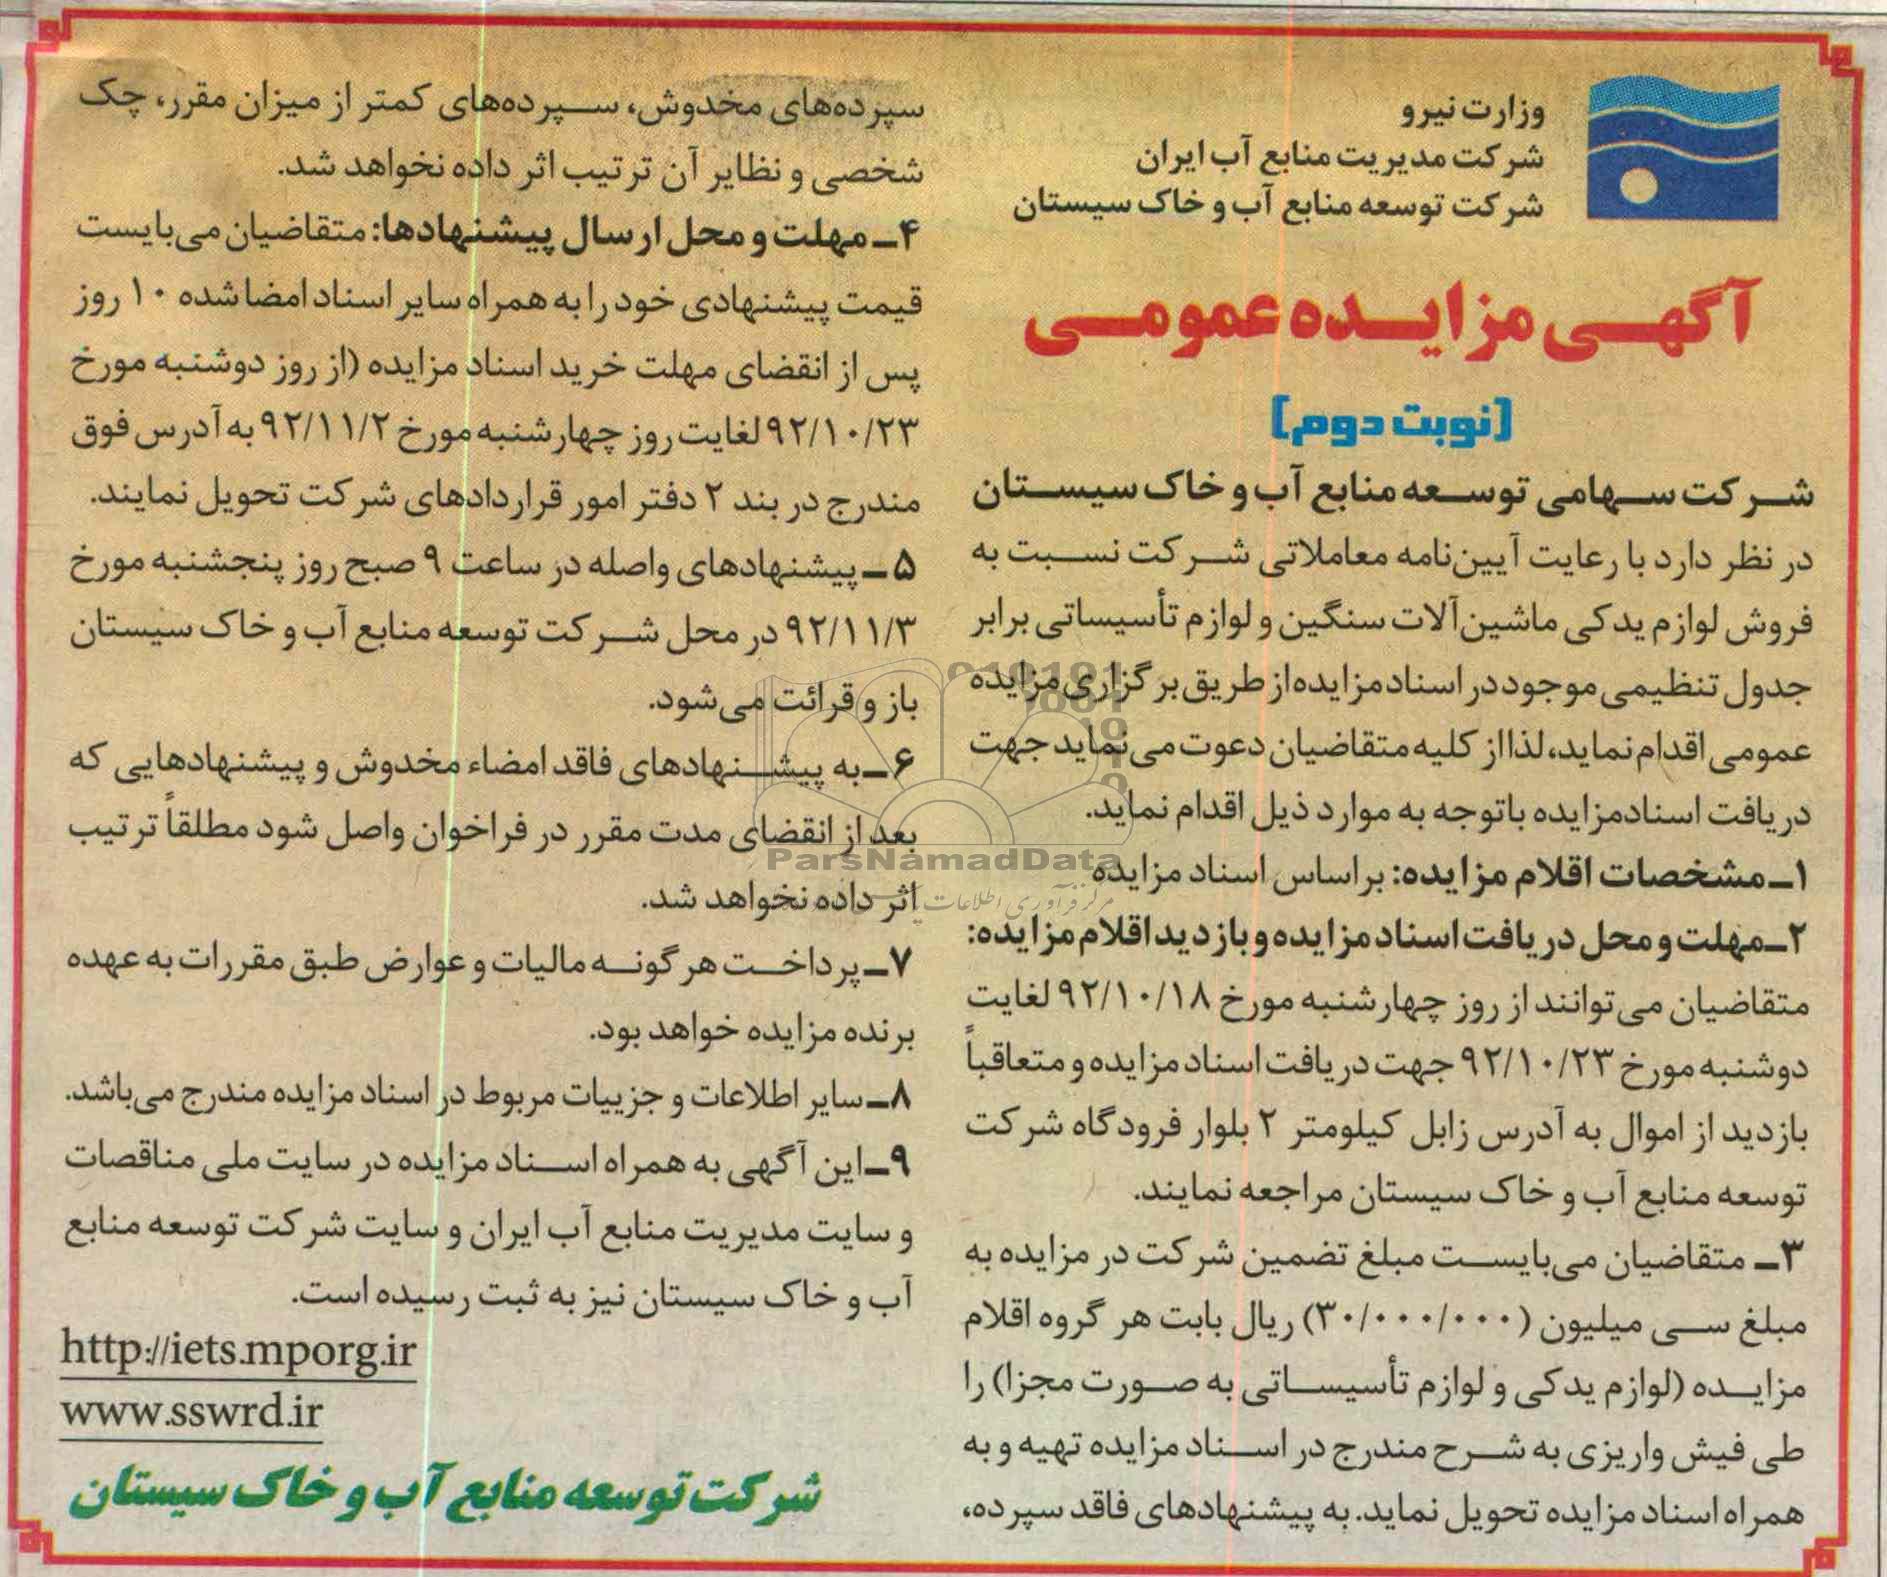 وزارت نیرو
شرکت مدیریت منابع آب ایران
شرکت توسعه منابع آب و خاک سیستان
آگهی مزایده عمومی
(نوبت دوم)
شرکت سهامی توسعه منابع آب و خاک سیستان
در نظر دارد با رعایت آیین‌نامه معاملاتی شرکت نسبت به
فروش لوازم یدکی ماشین‌آلات سنگین و لوازم تأسیساتی برابر
جدول تنظیمی موجود در اسناد مزایده از طریق برگزاری مزایده
عمومی اقدام نماید، لذا از کلیه متقاضیان دعوت می‌نماید جهت
دریافت اسناد مزایده باتوجه به موارد ذیل اقدام نماید.
۱ـ مشخصات اقلام مزایده: براساس اسناد مزایده
۲ـ مهلت و محل دریافت اسناد مزایده و بازدید اقلام مزایده:
متقاضیان می‌توانند از روز چهارشنبه مورخ ۹۲/۱۰/۱۸ لغایت
دوشنبه مورخ ۹۲/۱۰/۲۳ جهت دریافت اسناد مزایده و متعاقباً
بازدید از اموال به آدرس زابل کیلومتر ۲ بلوار فرودگاه شرکت
توسعه منابع آب و خاک سیستان مراجعه نمایند.
۳ـ متقاضیان می‌بایست مبلغ تضمین شرکت در مزایده به
مبلغ سی میلیون (۳۰/۰۰۰/۰۰۰) ریال بابت هر گروه اقلام
مزایده (لوازم یدکی و لوازم تأسیساتی به صورت مجزا) را
طی فیش واریزی به شرح مندرج در اسناد مزایده تهیه و به
همراه اسناد مزایده تحویل نماید. به پیشنهادهای فاقد سپرده،
سپرده‌های مخدوش، سپرده‌های کمتر از میزان مقرر، چک
شخصی و نظایر آن ترتیب اثر داده نخواهد شد.
۴ـ مهلت و محل ارسال پیشنهادها: متقاضیان می‌بایست
قیمت پیشنهادی خود را به همراه سایر اسناد امضا شده ۱۰ روز
پس از انقضای مهلت خرید اسناد مزایده (از روز دوشنبه مورخ
۹۲/۱۰/۲۳ لغایت روز چهارشنبه مورخ ۹۲/۱۱/۲ به آدرس فوق
مندرج در بند ۲ دفتر امور قراردادهای شرکت تحویل نمایند.
۵ـ پیشنهادهای واصله در ساعت ۹ صبح روز پنجشنبه مورخ
۹۲/۱۱/۳ در محل شرکت توسعه منابع آب و خاک سیستان
باز و قرائت می‌شود.
۶ـ به پیشنهادهای فاقد امضاء مخدوش و پیشنهادهایی که
بعد از انقضای مدت مقرر در فراخوان واصل شود مطلقاً ترتیب
اثر داده نخواهد شد.
۷ـ پرداخت هرگونه مالیات و عوارض طبق مقررات به عهده
برنده مزایده خواهد بود.
۸ـ سایر اطلاعات و جزییات مربوط در اسناد مزایده مندرج می‌باشد.
۹ـ این آگهی به همراه اسناد مزایده در سایت ملی مناقصات
و سایت مدیریت منابع آب ایران و سایت شرکت توسعه منابع
آب و خاک سیستان نیز به ثبت رسیده است.
http://iets.mporg.ir
www.sswrd.ir
شرکت توسعه منابع آب و خاک سیستان
ParsNamadData
مرکز فرآوری اطلاعات